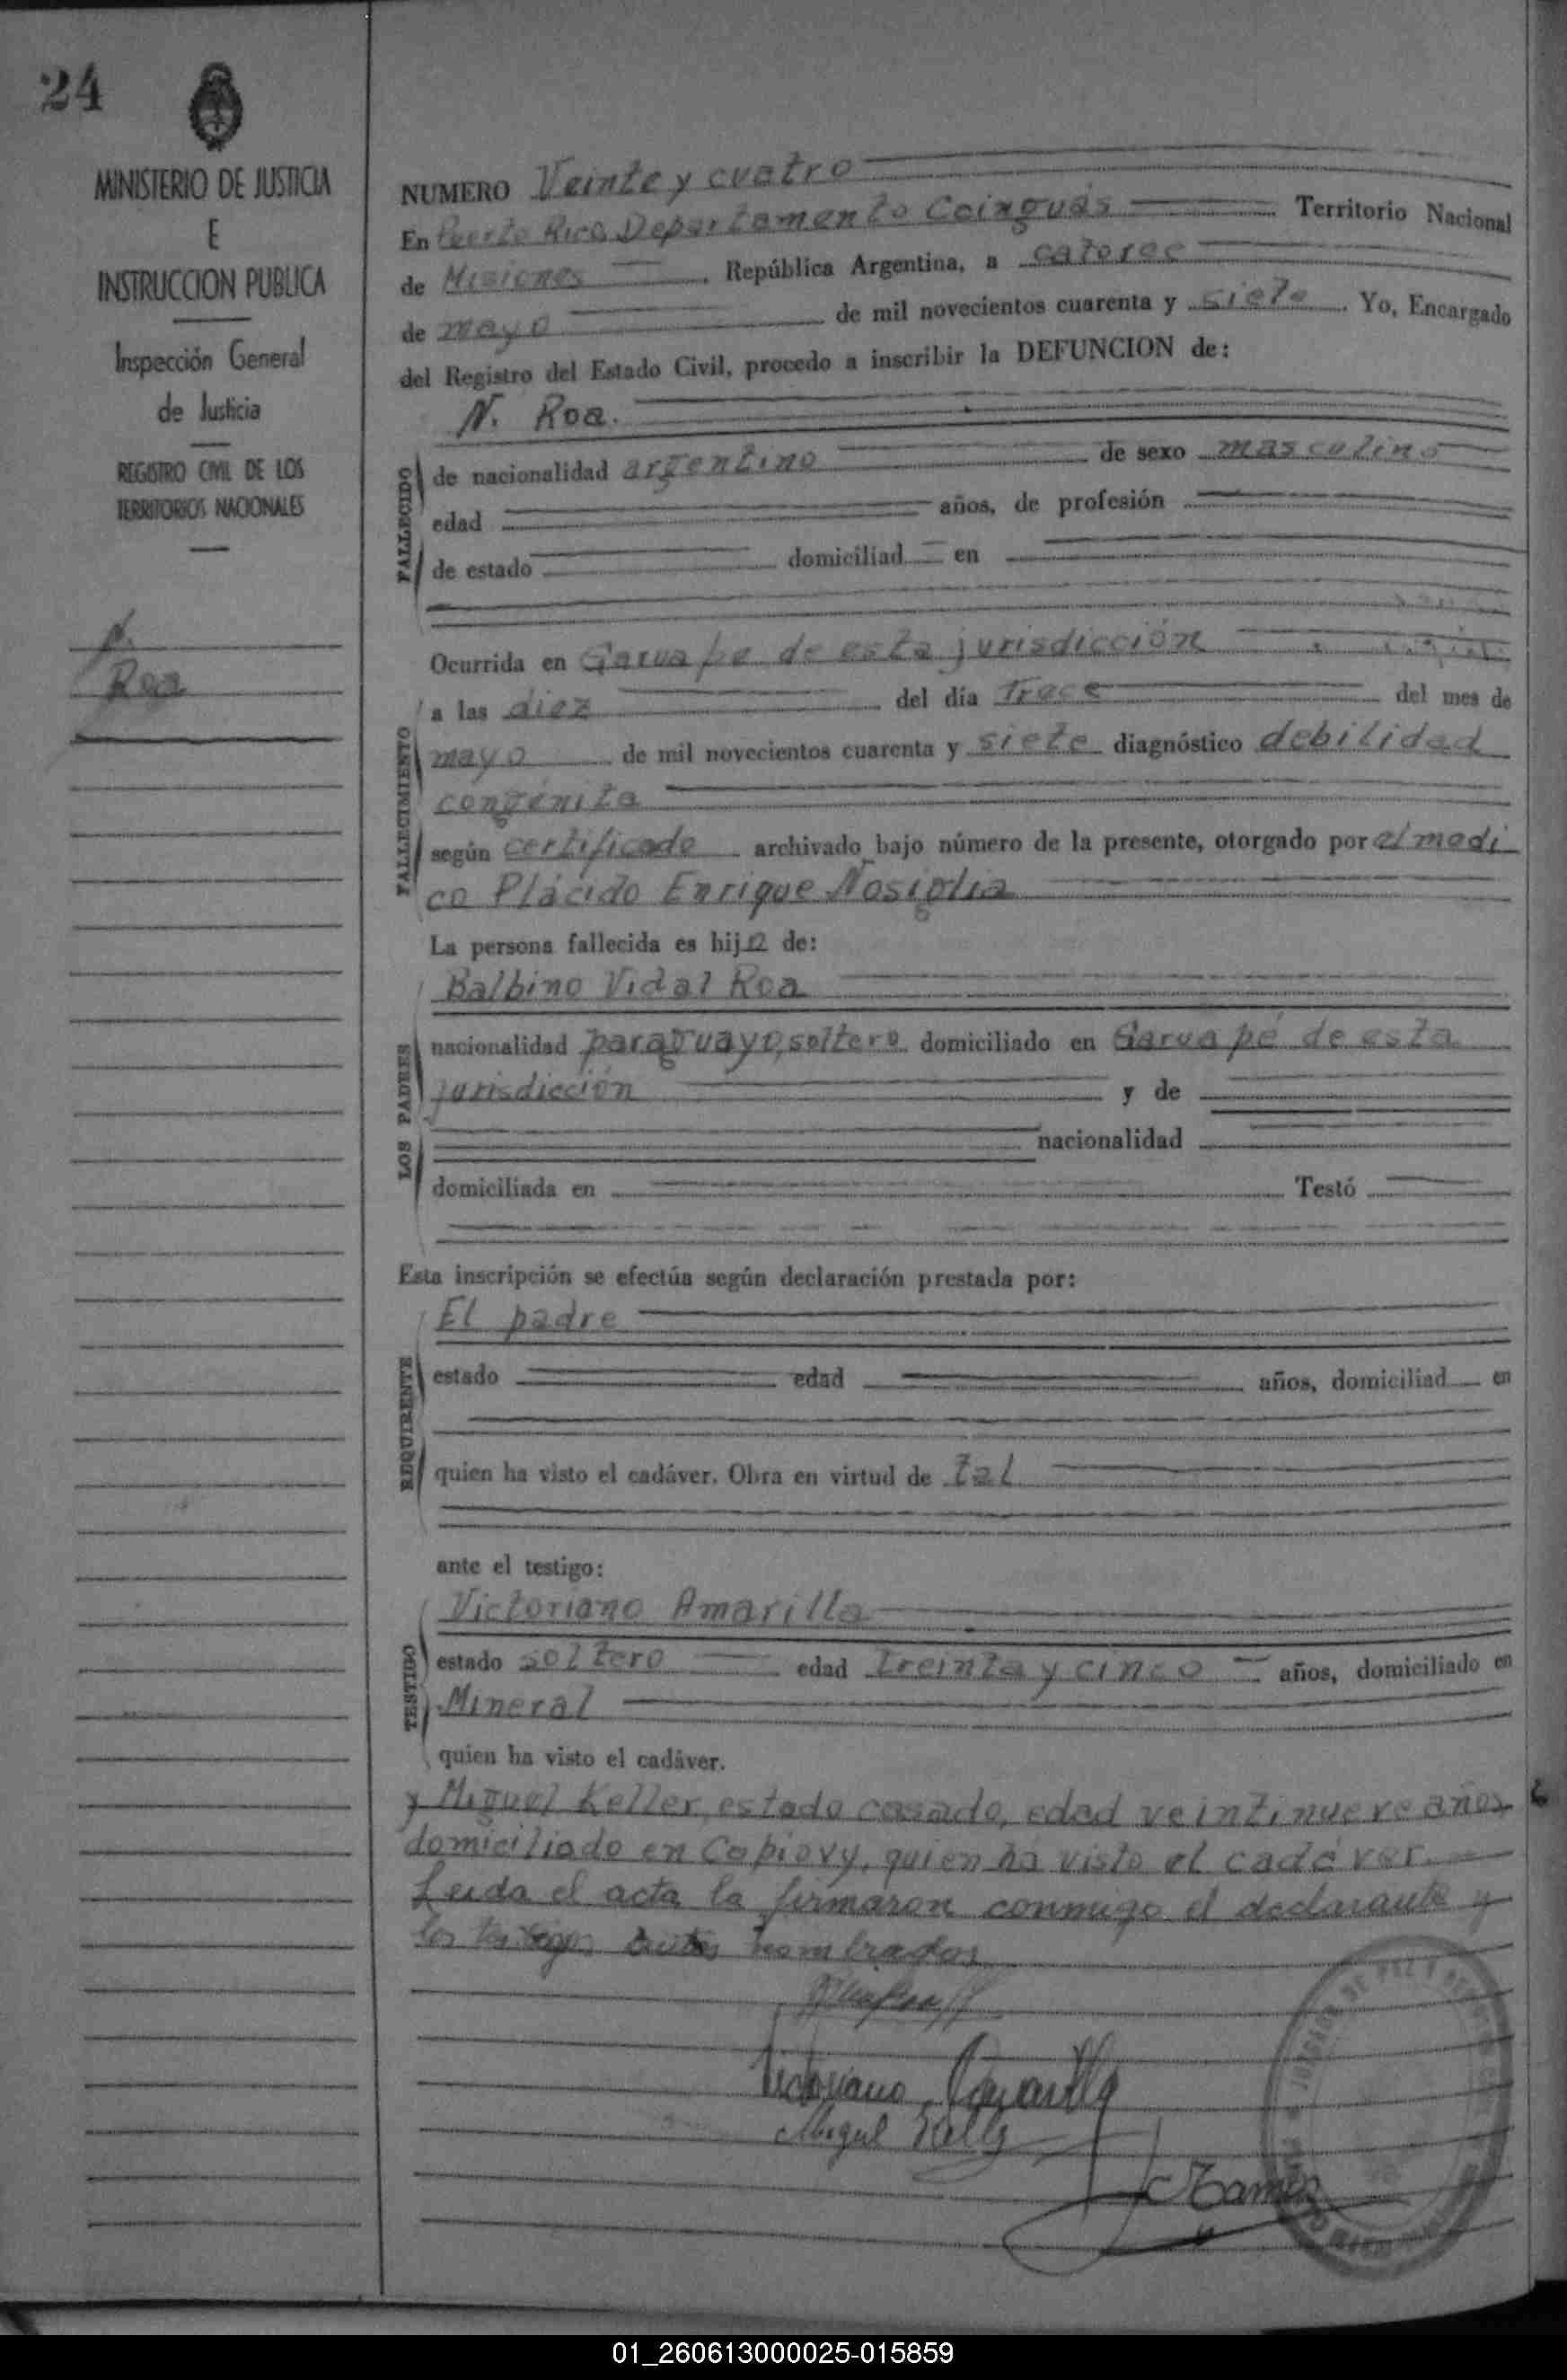 24
MINISTERIO DE JUSTICIA
E
INSTRUCCION PUBLICA
Inspección General
de Justicia
REGISTRO CIVIL DE LOS
TERRITORIOS NACIONALES
N.
Roa
NUMERO Veinte y cuatro
En Puerto Rico Departamento Cainguás Territorio Nacional
de Misiones, República Argentina, a catorce
de mayo de mil novecientos cuarenta y siete. Yo, Encargado
del Registro del Estado Civil, procedo a inscribir la DEFUNCION de:
N. Roa.
FALLECIDO
de nacionalidad argentino de sexo masculino
edad años, de profesión
de estado domiciliad en
FALLECIMIENTO
Ocurrida en Garuapé de esta jurisdicción
a las diez del día Trece del mes de
mayo de mil novecientos cuarenta y siete diagnóstico debilidad
congénita
según certificado archivado bajo número de la presente, otorgado por el medi
co Plácido Enrique Nosiglia
La persona fallecida es hijo de:
LOS PADRES
Balbino Vidal Roa
nacionalidad paraguayo, soltero domiciliado en Garuapé de esta
jurisdicción y de
nacionalidad
domiciliada en Testó
Esta inscripción se efectúa según declaración prestada por:
REQUIRENTE
El padre
estado edad años, domiciliad en
quien ha visto el cadáver. Obra en virtud de tal
ante el testigo:
TESTIGO
Victoriano Amarilla
estado soltero edad Treinta y cinco años, domiciliado en
Mineral
quien ha visto el cadáver.
y Miguel Keller, estado casado, edad veintinueve años
domiciliado en Capiovy, quien ha visto el cadáver.
Leida el acta la firmaron conmigo el declarante y
los testigos antes nombrados
Victoriano Amarilla
Miguel Keller
01_260613000025-015859